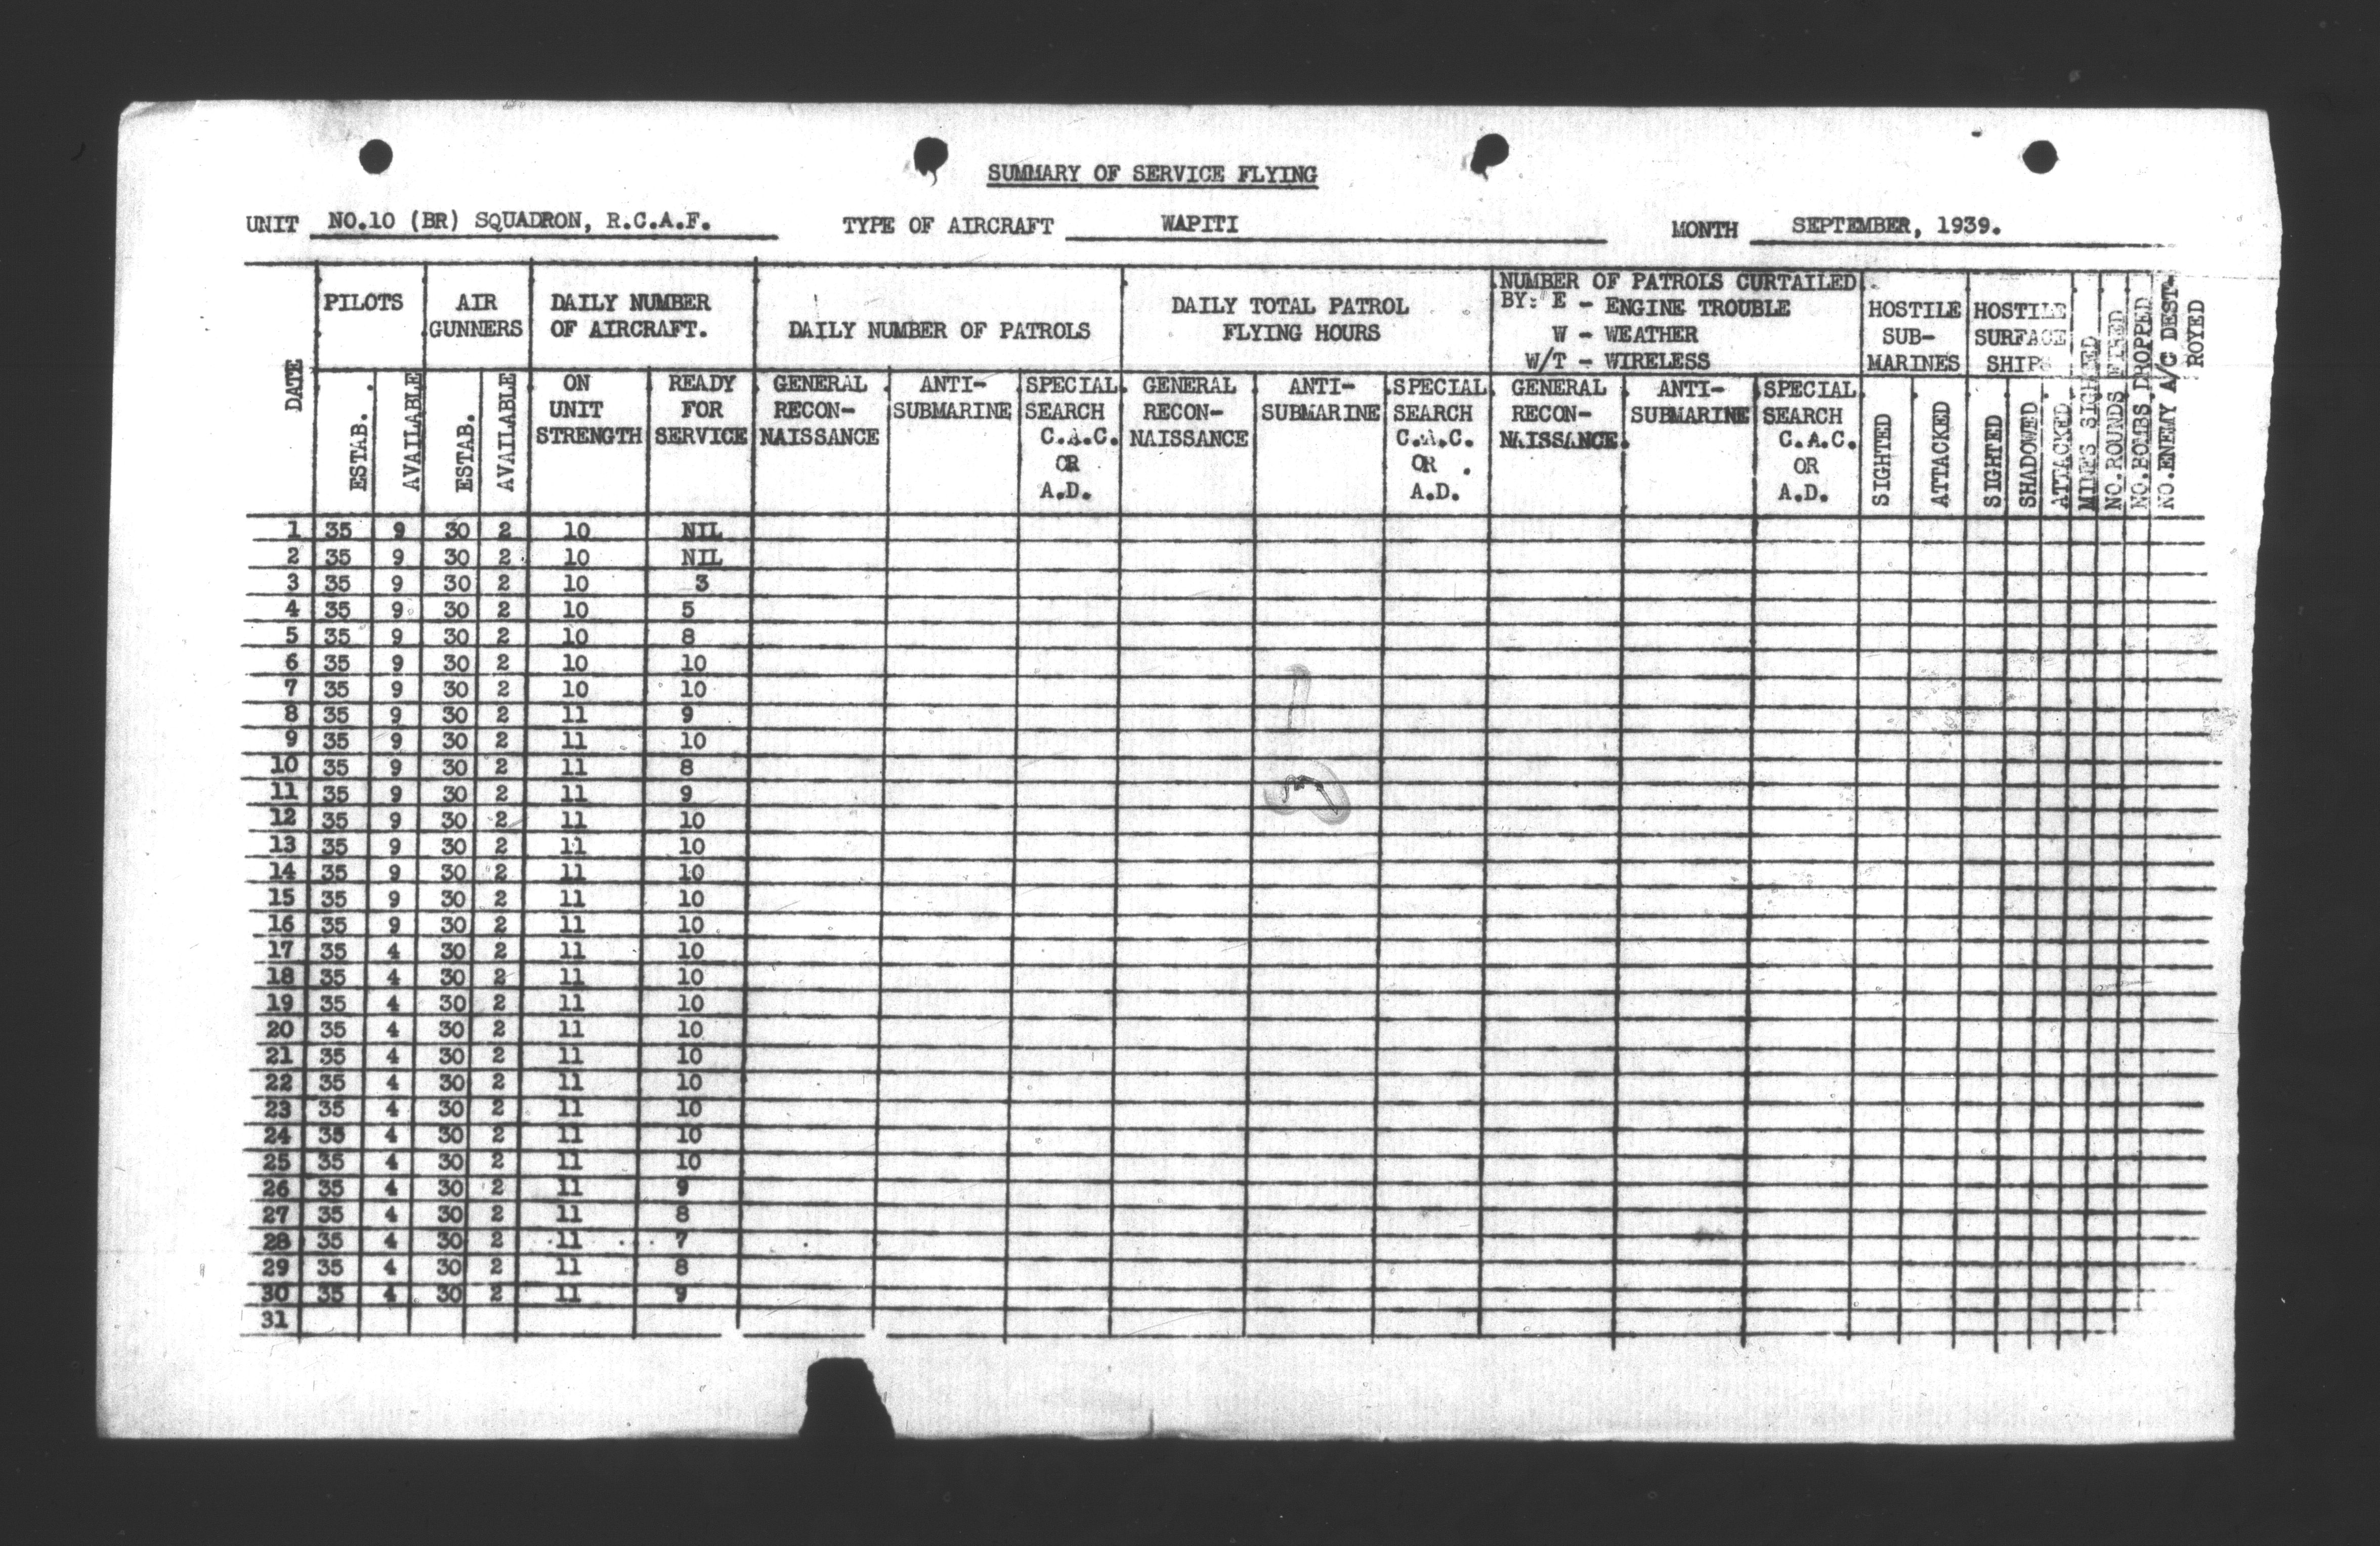 SUMMARY OF SERVICE FLYING
UNIT NO.10 (BR) SQUADRON, R.C.A.F. TYPE OF AIRCRAFT WAPITI MONTH SEPTEMBER, 1939.
DATE
PILOTS
ESTAB.
AVAILABLE
AIR
GUNNERS
ESTAB.
AVAILABLE
DAILY NUMBER
OF AIRCRAFT.
ON
UNIT
STRENGTH
READY
FOR
SERVICE
DAILY NUMBER OF PATROLS
GENERAL
RECON-
NAISSANCE
ANTI-
SUBMARINE
SPECIAL
SEARCH
C.A.C.
OR
A.D.
DAILY TOTAL PATROL
FLYING HOURS
GENERAL
RECON-
NAISSANCE
ANTI-
SUBMARINE
SPECIAL
SEARCH
C.A.C.
OR
A.D.
NUMBER OF PATROLS CURTAILED
BY: E - ENGINE TROUBLE
W - WEATHER
W/T - WIRELESS
GENERAL
RECON-
NAISSANCE.
ANTI-
SUBMARINE
SPECIAL
SEARCH
C.A.C.
OR
A.D.
HOSTILE
SUB-
MARINES
SIGHTED
ATTACKED
HOSTILE
SURFACE
SHIPS
SIGHTED
SHADOWED
ATTACKED
MINES SIGHTED
NO. ROUNDS FIRED
NO. BOMBS DROPPED
NO. ENEMY A/C DEST-
ROYED
1 35 9 30 2 10 NIL
2 35 9 30 2 10 NIL
3 35 9 30 2 10 3
4 35 9 30 2 10 5
5 35 9 30 2 10 8
6 35 9 30 2 10 10
7 35 9 30 2 10 10
8 35 9 30 2 11 9
9 35 9 30 2 11 10
10 35 9 30 2 11 8
11 35 9 30 2 11 9
12 35 9 30 2 11 10
13 35 9 30 2 11 10
14 35 9 30 2 11 10
15 35 9 30 2 11 10
16 35 9 30 2 11 10
17 35 4 30 2 11 10
18 35 4 30 2 11 10
19 35 4 30 2 11 10
20 35 4 30 2 11 10
21 35 4 30 2 11 10
22 35 4 30 2 11 10
23 35 4 30 2 11 10
24 35 4 30 2 11 10
25 35 4 30 2 11 10
26 35 4 30 2 11 9
27 35 4 30 2 11 8
28 35 4 30 2 11 7
29 35 4 30 2 11 8
30 35 4 30 2 11 9
31